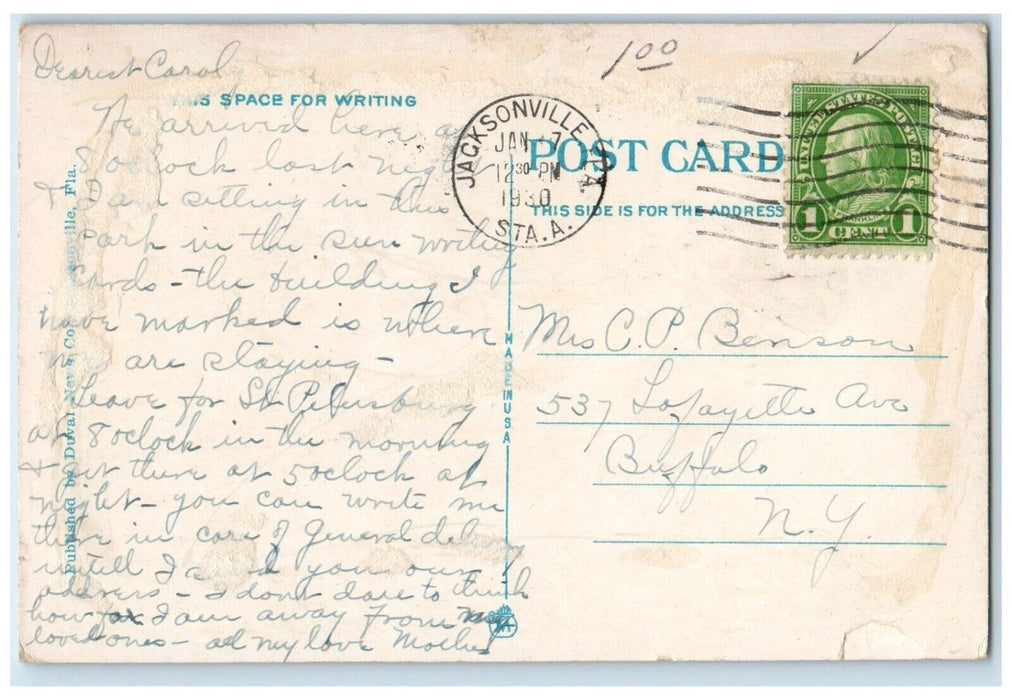 Dearest Carol
THIS SPACE FOR WRITING
We arrived here at
8 oclock last night
& I am sitting in this
park in the sun writing
cards - the building I
have marked is where
we are staying -
Leave for St Petersburg
at 8 oclock in the morning
& get there at 5 oclock at
night - you can write me
there in care of General delivery
untill I send you our
address - I don't dare to think
how far I am away from my
loved ones - all my love Mother
Published by Duval News Co., Jacksonville, Fla.
MADE IN USA
1 00
JACKSONVILLE, FLA.
JAN 7
12 30 PM
1930
STA. A.
POST CARD
THIS SIDE IS FOR THE ADDRESS
UNITED STATES POSTAGE
FRANKLIN
1 CENT 1
Mrs C. P. Benson
537 Lafayette Ave
Buffalo
N. Y.